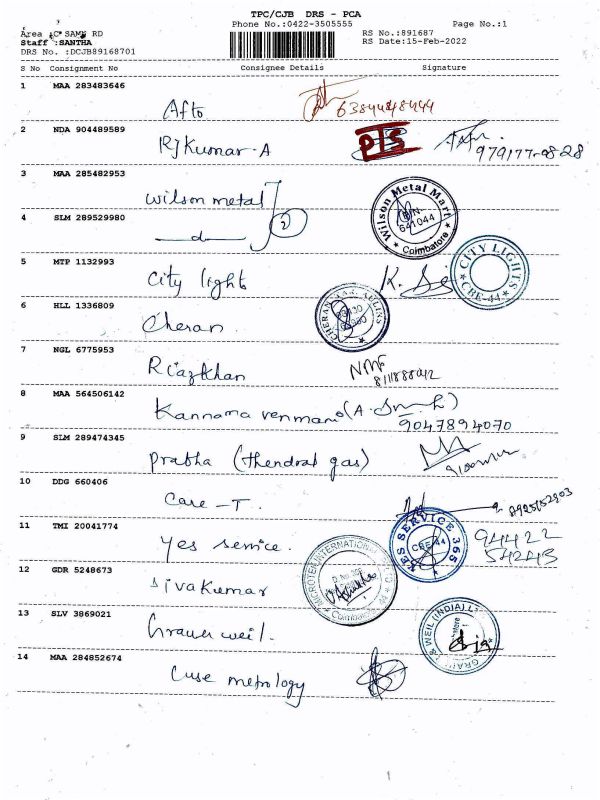 TPC/CJB DRS - PCA
Phone No.:0422-3505555 Page No.:1
Area :C SAMY RD RS No.:891687
Staff :SANTHA RS Date:15-Feb-2022
DRS No. :DCJB89168701
S No Consignment No Consignee Details Signature
1 MAA 283483646
Afto
2 NDA 904489589
RJ Kumar.A PTS
3 MAA 285482953
Wilson metal Wilson Metal Mart
4 SLM 289529980 PIN 641044
d 2 Coimbatore
5 MTP 1132993
City light CITY LIGHTS CBE-44
6 HLL 1336809
Cheran CHERAN
7 NGL 6775953
Riazkhan
8 MAA 564506142
Kannama
9047894070
9 SLM 289474345
Prabha (thendral gas)
10 DDG 660406
Care - T.
11 TMI 20041774
Yes service. YES SERVICE 365 CBE-44 94422
54243
12 GDR 5248673
Sivakumar MICROTEK INTERNATIONAL
13 SLV 3869021
Grauer weil. & WEIL (INDIA)
14 MAA 284852674
Cuse metrology